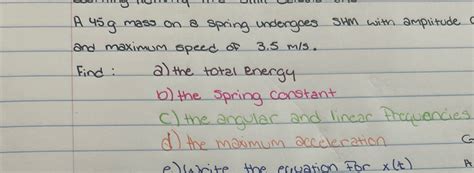 A 45g mass on a spring undergoes SHM with amplitude
and maximum speed of 3.5 m/s.
Find : a) the total energy
b) the spring constant
c) the angular and linear frequencies
d) the maximum acceleration
e) Write the equation for x(t)